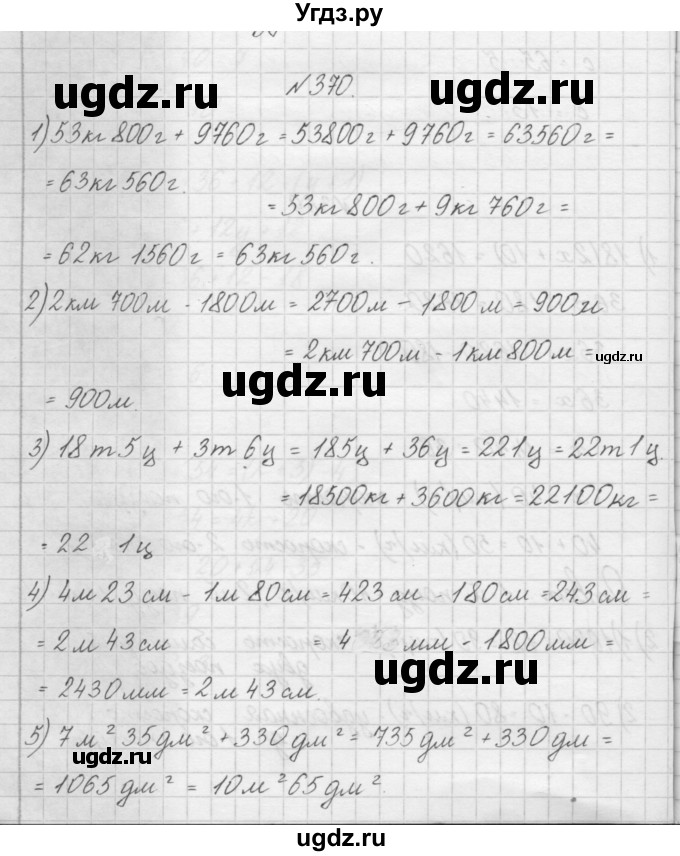 Угдз.ру
ugdz.ru ugdz.ru
№370.
1) 53кг 800г + 9760г = 53800г + 9760г = 63560г =
= 63кг 560г.
= 53кг 800г + 9кг 760г =
= 62кг 1560г = 63кг 560г.
2) 2км 700м - 1800м = 2700м - 1800м = 900м
= 2км 700м - 1км 800м =
ugdz.ru
ugdz.ru
= 900м.
3) 18т 5ц + 3т 6ц = 185ц + 36ц = 221ц = 22т 1ц.
= 18500кг + 3600кг = 22100кг =
ugdz.ru
= 22 1ц
4) 4м 23см - 1м 80см = 423см - 180см = 243см =
= 2м 43см = 4 мм - 1800мм =
ugdz.ru
= 2430мм = 2м 43см.
5) 7м² 35дм² + 330дм² = 735дм² + 330дм =
ugdz.ru
= 1065дм² = 10м² 65дм².
ugdz.ru